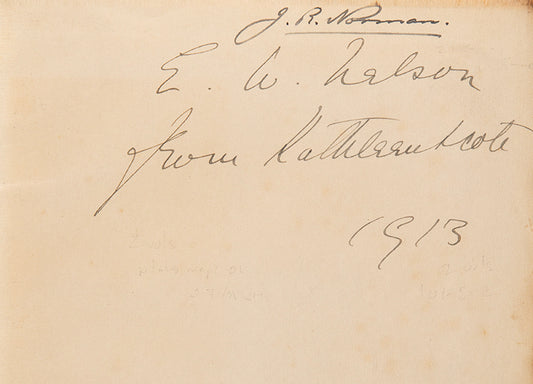 J. R. Norman.
E. W. Nelson
from Kathleen Scott
1913